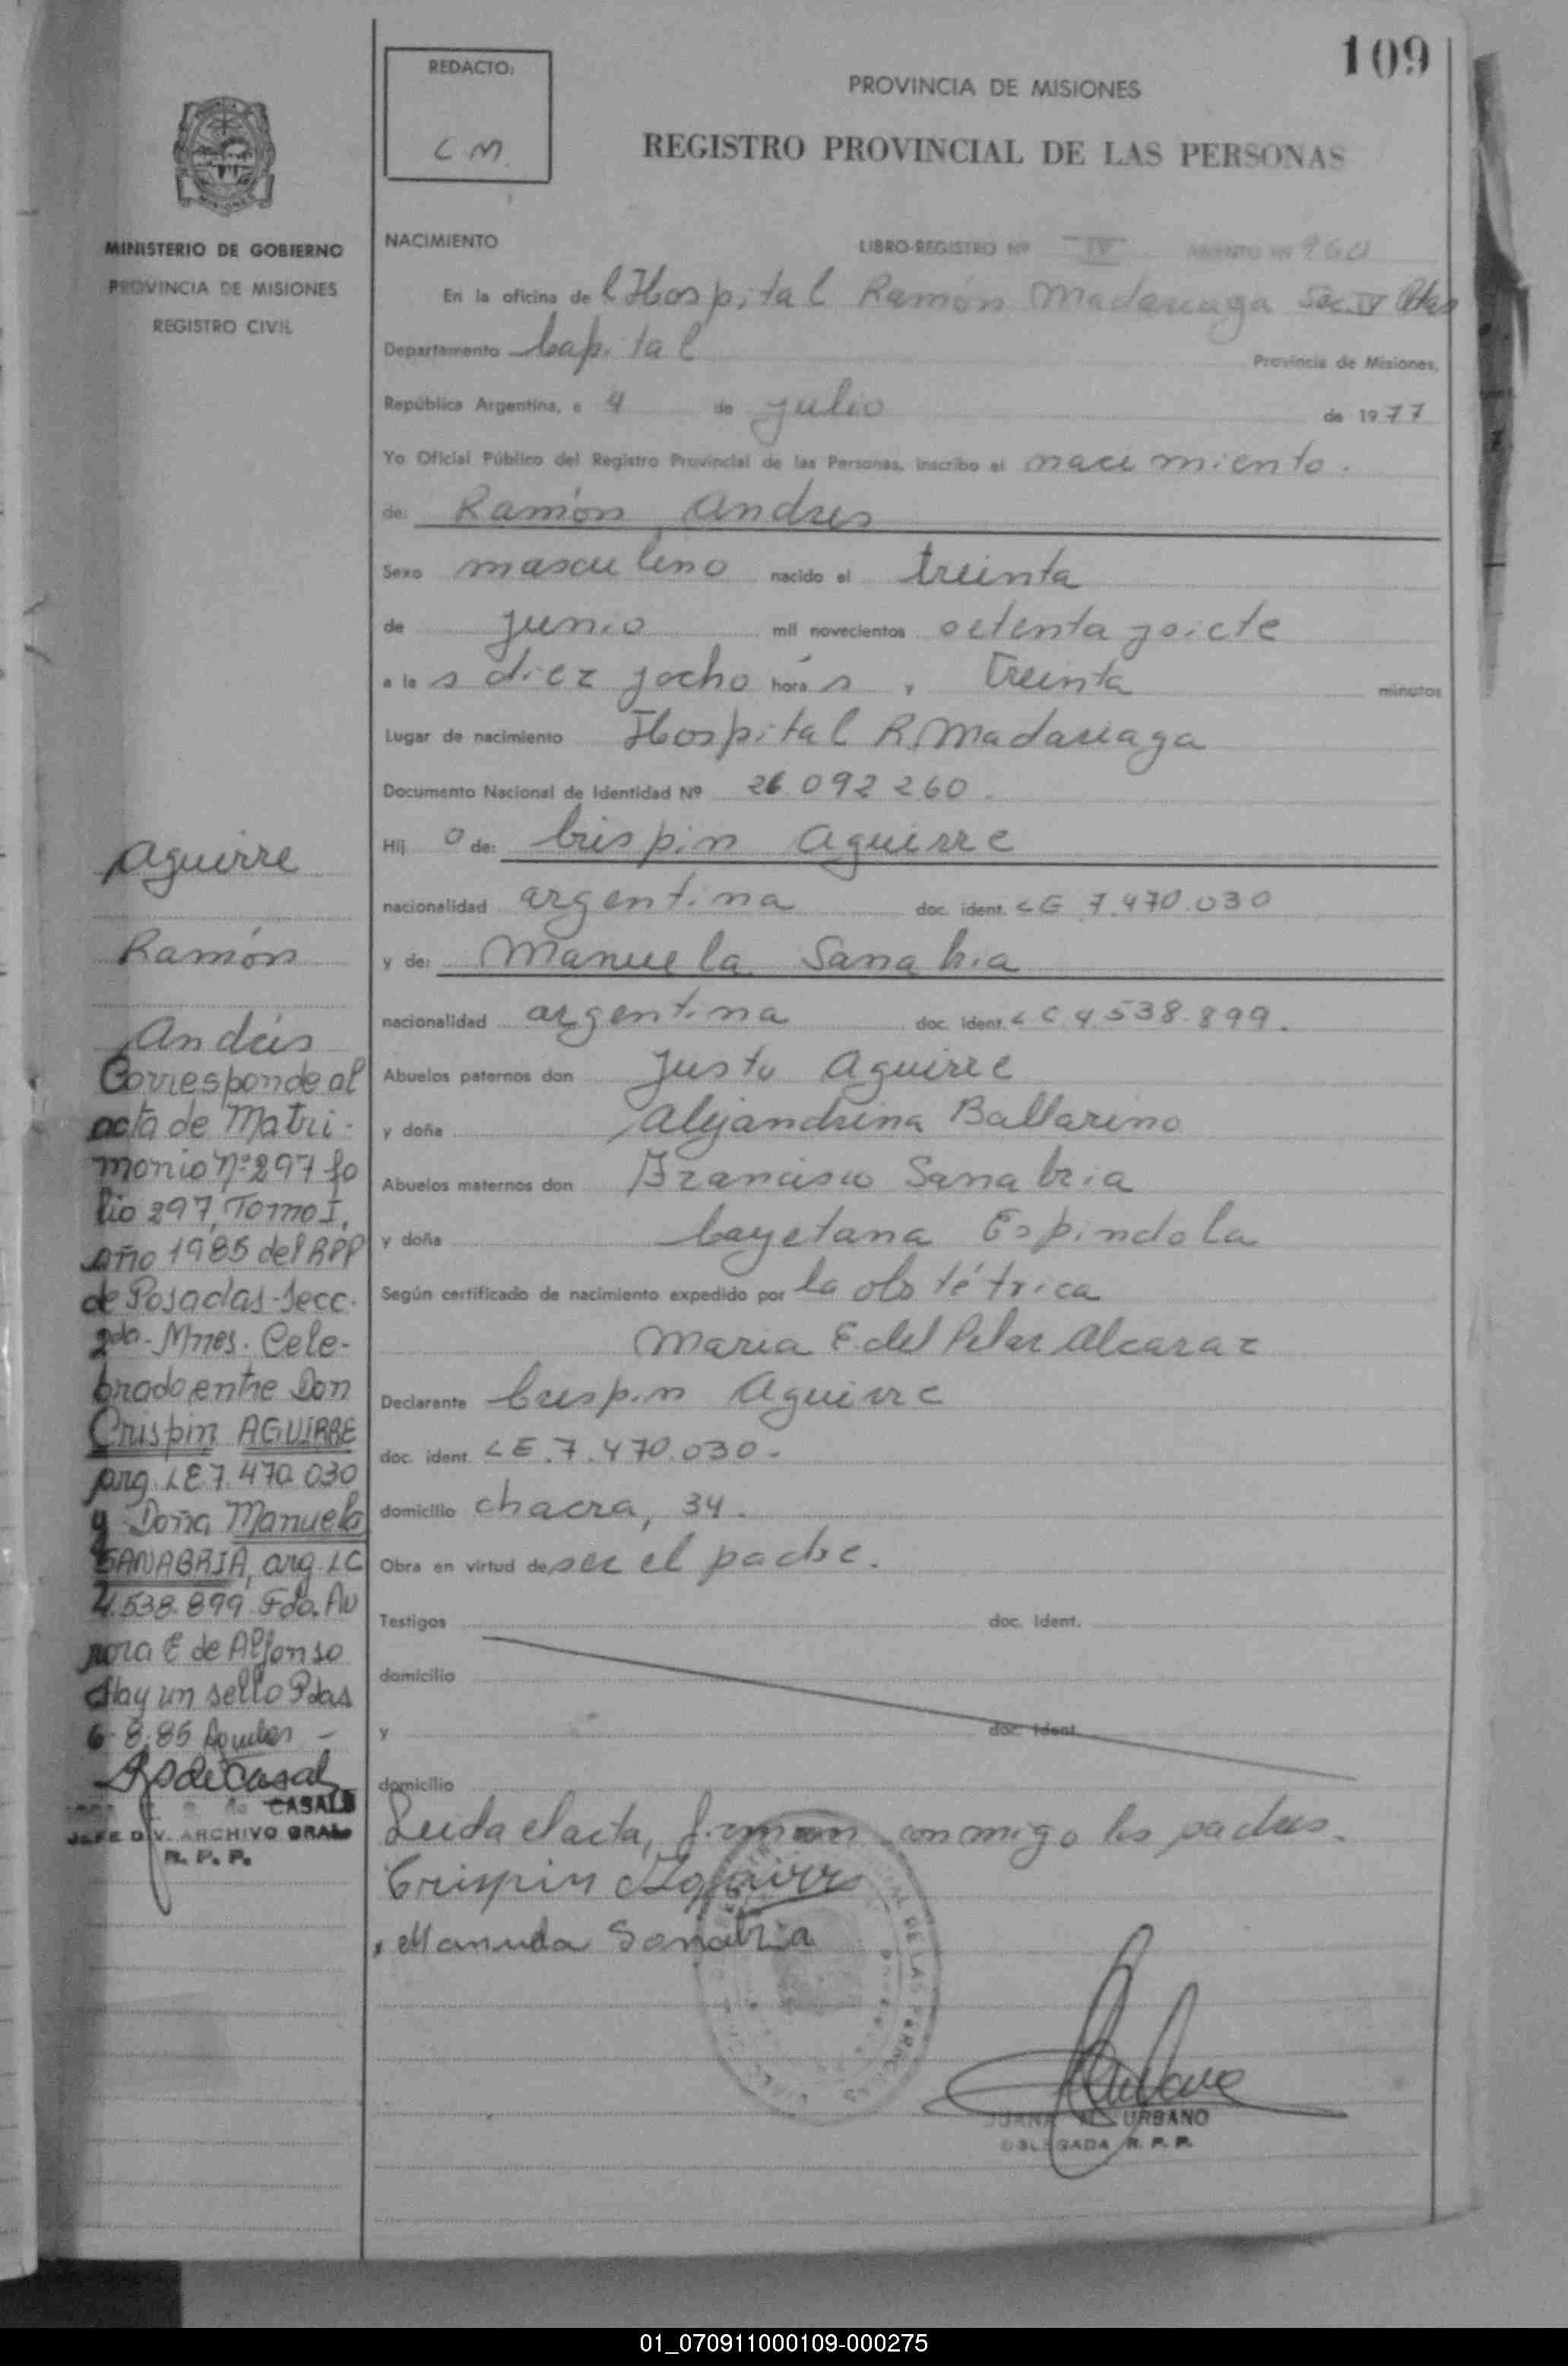 109
REDACTO:
C M.
PROVINCIA DE MISIONES
REGISTRO PROVINCIAL DE LAS PERSONAS
MINISTERIO DE GOBIERNO
PROVINCIA DE MISIONES
REGISTRO CIVIL
NACIMIENTO LIBRO-REGISTRO Nº IV 960
En la oficina del Hospital Ramón Madariaga Sec. IV Pdas
Departamento Capital Provincia de Misiones,
República Argentina, a 4 de julio de 1977
Yo Oficial Público del Registro Provincial de las Personas, inscribo el nacimiento.
de: Ramón Andres
Sexo masculino nacido el treinta
de junio mil novecientos setenta y siete
a las diez y ocho horas y treinta minutos
Lugar de nacimiento Hospital R. Madariaga
Documento Nacional de Identidad Nº 26.092 260.
Hijo de: Crispin Aguirre
nacionalidad argentina doc. ident. LE 7.470.030
y de: Manuela Sanabria
nacionalidad argentina doc. ident. LC 4.538.899.
Abuelos paternos don Justo Aguirre
y doña Alejandrina Ballarino
Abuelos maternos don Francisco Sanabria
y doña Cayetana Espindola
Según certificado de nacimiento expedido por la obstétrica
Maria E. del Pilar Alcaraz
Declarante Crispin Aguirre
doc. ident. LE. 7.470.030.
domicilio chacra, 34.
Obra en virtud de ser el padre.
Testigos doc. Ident.
domicilio
y doc. Ident.
domicilio
Leida el acta, firman conmigo los padres.
Crispin Aguirre
Manuela Sanabria
JUANA URBANO
DELEGADA R. P. P.
Aguirre
Ramón
Andrés
Corresponde al
acta de Matri-
monio Nº 297 fo
lio 297, Tomo I,
año 1985 del RPP
de Posadas-Secc.
2da- Mnes. Cele-
brado entre Don
Crispin AGUIRRE
arg. LE 7.470.030
y Doña Manuela
SANABRIA, arg. LC
4.538.899 Fdo. Au
rora E de Alfonso
Hay un sello Pdas
6-8.85
de CASALS
JEFE DIV. ARCHIVO GRAL
R. P. P.
01_070911000109-000275